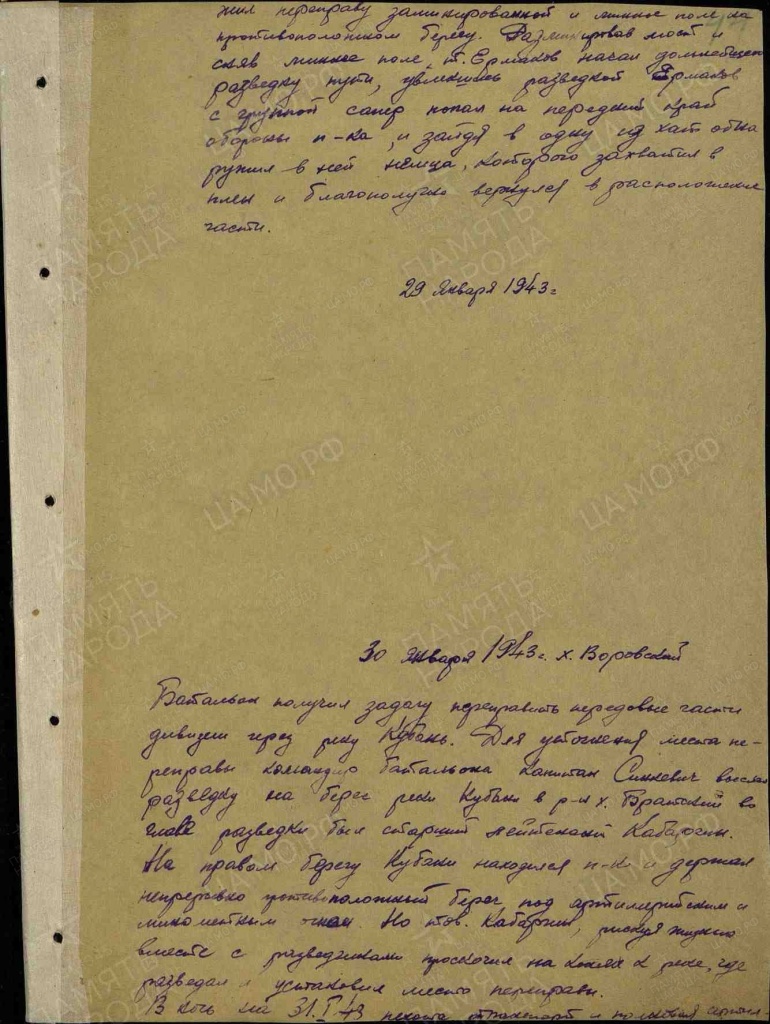 жил переправу заминированной и минное поле на
противоположном берегу. Разминировав мост и
сняв минное поле, т. Ермаков начал дальнейшую
разведку пути, увлекшись разведкой Ермаков
с группой сапер попал на передний край
обороны п-ка, и зайдя в одну из хат обна
ружил в ней немца, которого захватил в
плен и благополучно вернулся в расположение
части.
29 января 1943 г.
30 января 1943 г. х. Воровский
Батальон получил задачу переправить передовые части
дивизии через реку Кубань. Для уточнения места пе-
реправы командир батальона капитан Синкевич выслал
разведку на берег реки Кубани в р-н х. Братский во
главе разведки был старший лейтенант
На правом берегу Кубани находился п-к и держал
непрерывно противоположный берег под артиллерийским и
минометным огнем. Но тов. рискуя жизнью
вместе с разведчиками проскочил на конях к реке, где
разведал и установил место переправы.
В ночь на 31.I.43 пехота и полковая
ПАМЯТЬ
НАРОДА
ЦАМО.РФ